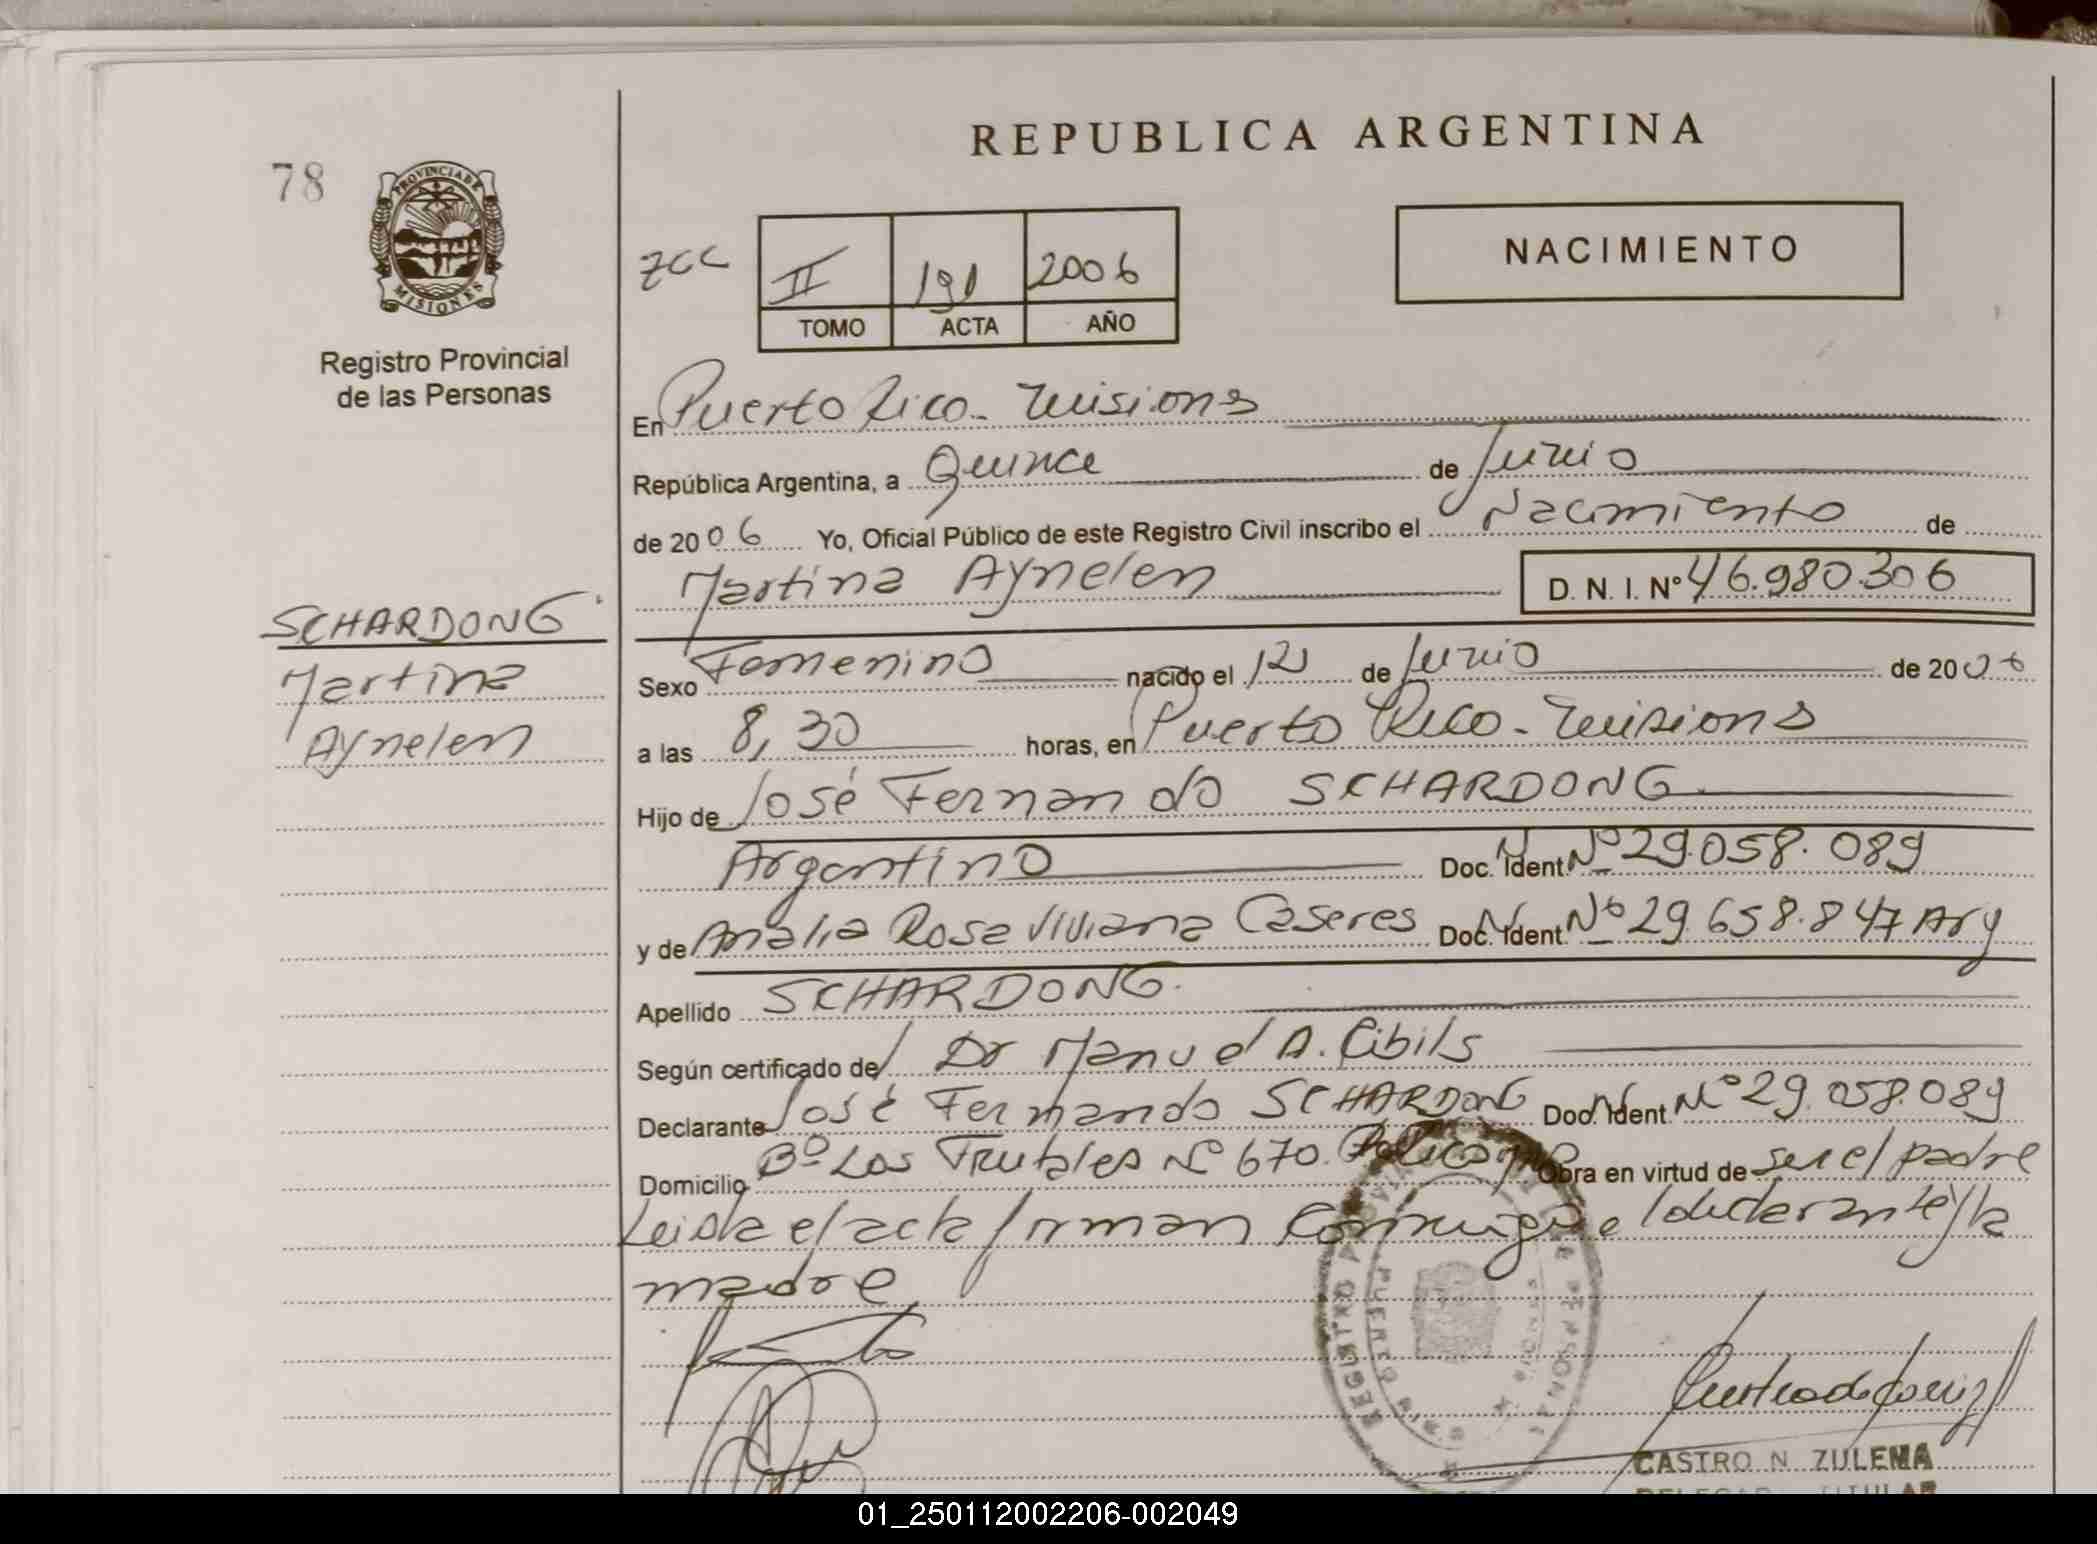 REPUBLICA ARGENTINA
78
PROVINCIA DE MISIONES
Registro Provincial
de las Personas
II 191 2006
TOMO ACTA AÑO
NACIMIENTO
En Puerto Rico - Misiones
República Argentina, a Quince de Junio
de 2006 Yo, Oficial Público de este Registro Civil inscribo el Nacimiento de
Martina Aynelen D. N. I. Nº 46.980.306
SCHARDONG
Martina
Aynelen
Sexo Femenino nacido el 12 de Junio de 2006
a las 8,30 horas, en Puerto Rico - Misiones
Hijo de José Fernando SCHARDONG
Argentino Doc. Ident. Nº 29.058.089
y de Analia Rosa Viviana Caseres Doc. Ident. Nº 29.658.847 Arg
Apellido SCHARDONG
Según certificado del Dr Manuel A. Cibils
Declarante José Fernando SCHARDONG Doc. Ident. Nº 29.058.089
Domicilio Bº Los Frutales Nº 670. Obra en virtud de ser el padre
Leida el acta firman conmigo el declarante y la
madre
REGISTRO PROVINCIAL DE LAS PERSONAS
PUERTO RICO
MISIONES
CASTRO N. ZULEMA
01_250112002206-002049